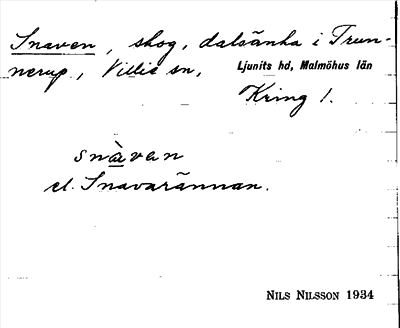 Snaven, skog, dalsänka i Trun-
nerup, Villie sn, Ljunits hd, Malmöhus län
Kring 1.
snàvan
el. Snavarännan.
NILS NILSSON 1934